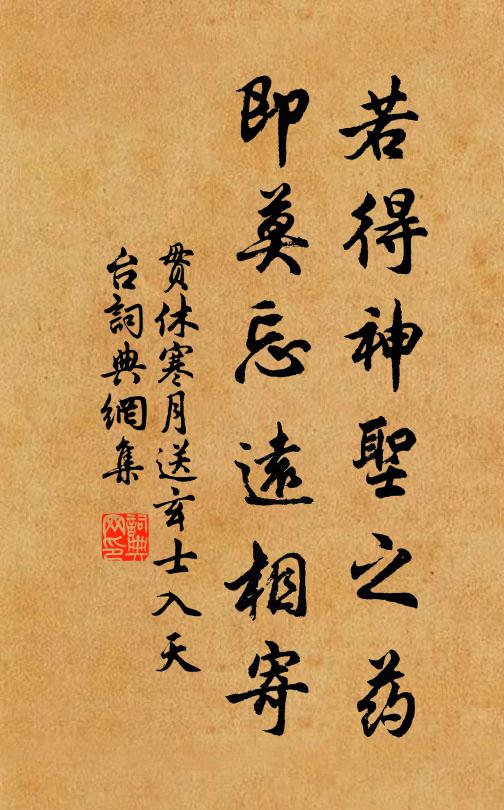 若得神聖之药
即莫忘遠相寄
贯休寒月送玄士入天
台詞典網集
詞典网印